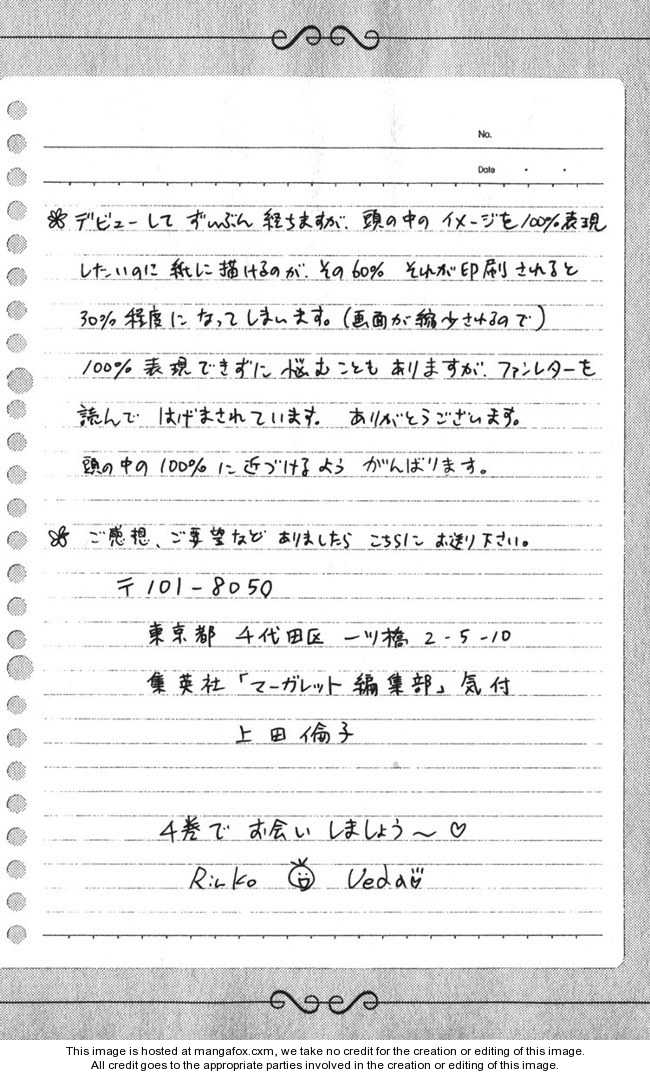 No.
Date ・ ・
デビューして ずいぶん 経ちますが、頭の中の イメージを100%表現
したいのに 紙に描けるのが、その60% それが印刷されると
30%程度に なってしまいます。(画面が縮少されるので)
100% 表現できずに 悩むことも ありますが、ファンレターを
読んで はげまされています。 ありがとうございます。
頭の中の 100% に 近づけるよう がんばります。
ご感想、ご要望など ありましたら こちらに お送り下さい。
〒101-8050
東京都 千代田区 一ツ橋 2-5-10
集英社「マーガレット 編集部」気付
上田倫子
4巻で お会い しましょう〜♡
Rinko Ueda
This image is hosted at mangafox.cxm, we take no credit for the creation or editing of this image.
All credit goes to the appropriate parties involved in the creation or editing of this image.